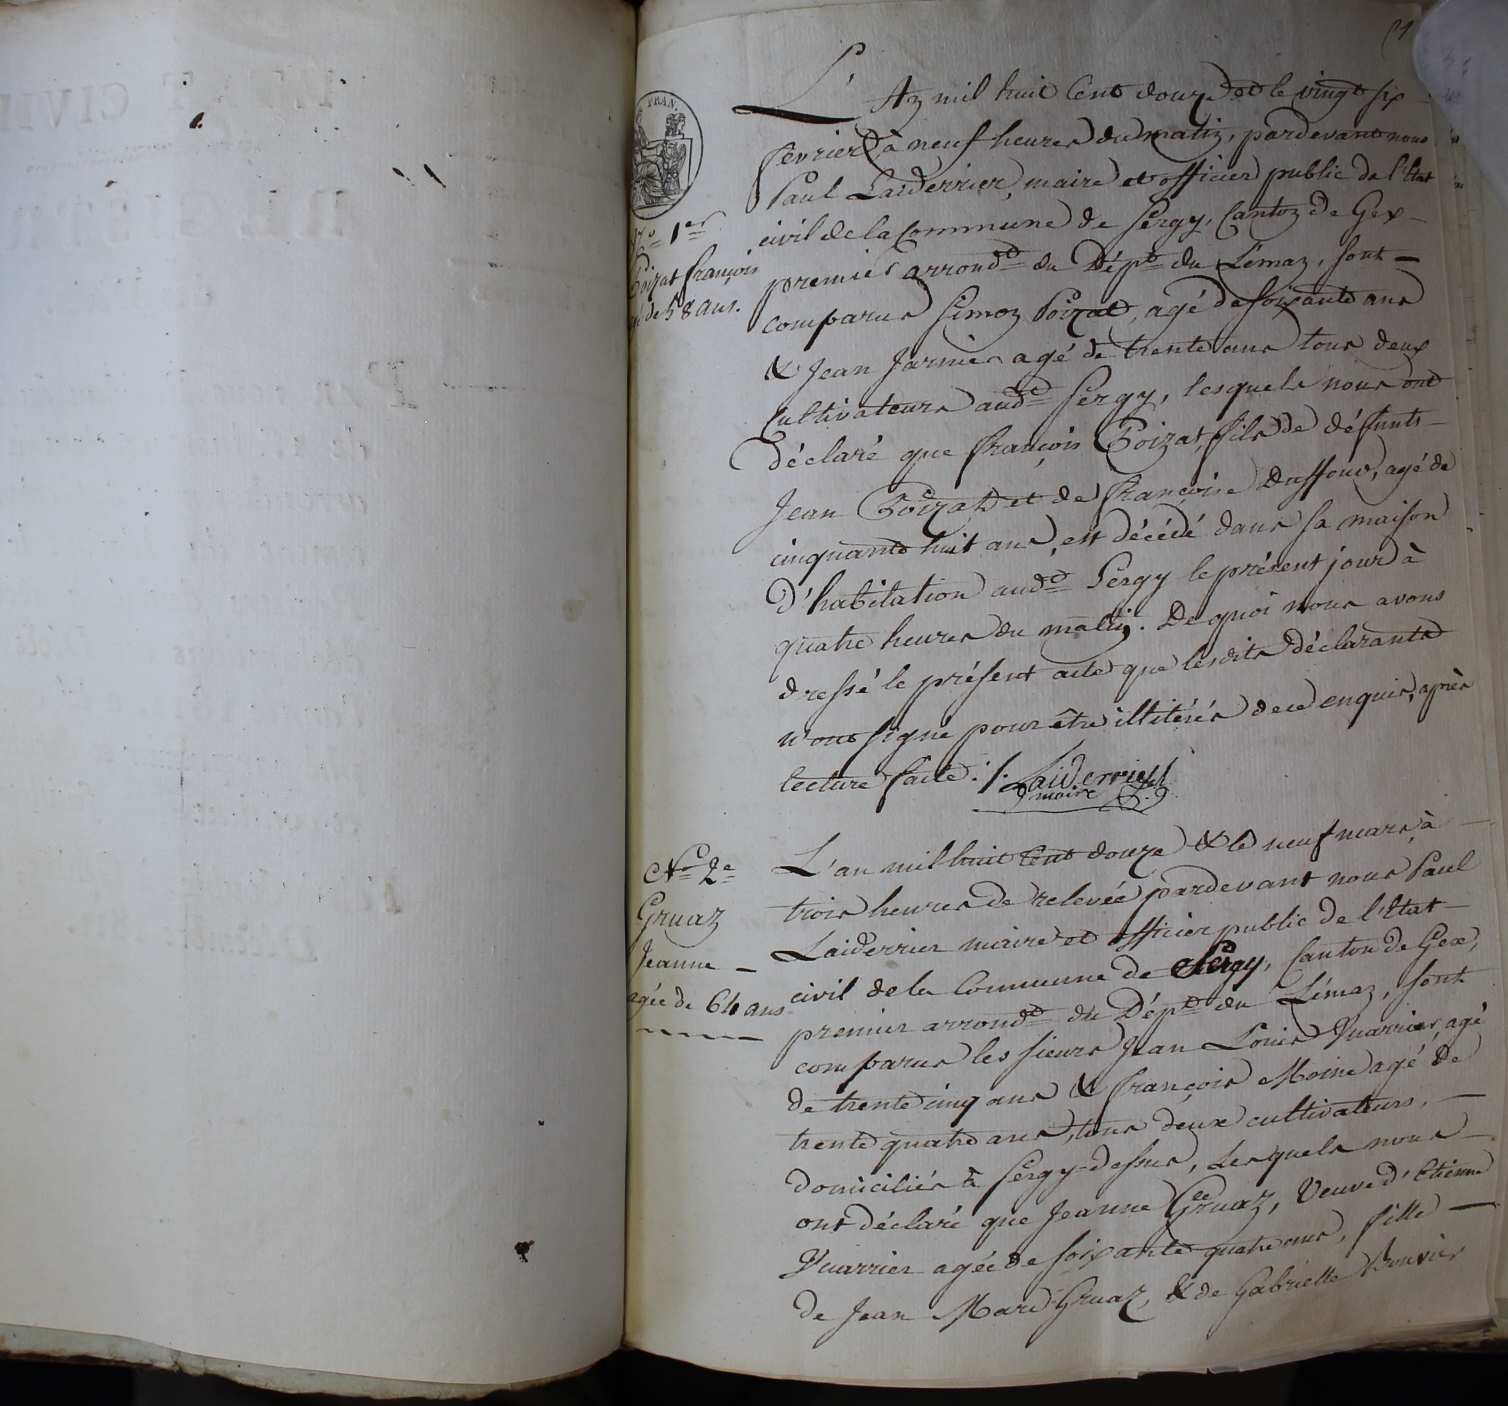 FRAN.
N.o 1er
Poizat françois
agé de 58 ans.
L'An mil huit Cent douze et le vingt six
février à neuf heures du matin, pardevant nous
Paul Laiderrier, maire et officier public de l'Etat
civil de la Commune de Sergy, Canton de Gex
premier arrond.t du Dép.t du Léman, sont
comparus Simon Poizat, agé de soixante ans
& Jean Jarnier agé de trente ans tous deux
Cultivateurs aud.t Sergy, lesquels nous ont
déclaré que françois Poizat, fils de défunts
Jean Poizat et de françoise Duffour, agé de
cinquante huit ans, est décédé dans sa maison
d'habitation aud.t Sergy le présent jour à
quatre heures du matin. De quoi nous avons
dressé le présent acte que lesdits déclarants
n'ont signé pour être illitérés de ce enquis, après
lecture faite ./.
Laiderrier
maire
N.o 2e
Gruaz
Jeanne
agée de 64 ans
L'an mil huit Cent douze & le neuf mars, à
trois heures de relevée pardevant nous Paul
Laiderrier maire et officier public de l'Etat
civil de la Commune de Sergy, Canton de Gex,
premier arrond.t du Dép.t du Léman, sont
comparus les sieurs Jean Louis Vuarrier, agé
de trente cinq ans & françois Moine agé de
trente quatre ans, tous deux cultivateurs,
domiciliés à Sergy-dessus, Lesquels nous
ont déclaré que Jeanne Gruaz, Veuve d'Etienne
Vuarrier agée de soixante quatre ans, fille
de Jean Marc Gruaz, & de Gabrielle Bouvier